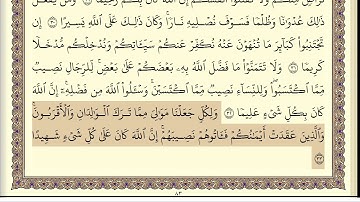 ذَٰلِكَ عُدْوَٰنًا وَظُلْمًا فَسَوْفَ نُصْلِيهِ نَارًا ۚ وَكَانَ ذَٰلِكَ عَلَى ٱللَّهِ يَسِيرًا ٣٠ إِن
تَجْتَنِبُوا۟ كَبَآئِرَ مَا تُنْهَوْنَ عَنْهُ نُكَفِّرْ عَنكُمْ سَيِّـَٔاتِكُمْ وَنُدْخِلْكُم مُّدْخَلًا
كَرِيمًا ٣١ وَلَا تَتَمَنَّوْا۟ مَا فَضَّلَ ٱللَّهُ بِهِۦ بَعْضَكُمْ عَلَىٰ بَعْضٍ ۚ لِّلرِّجَالِ نَصِيبٌ
مِّمَّا ٱكْتَسَبُوا۟ ۖ وَلِلنِّسَآءِ نَصِيبٌ مِّمَّا ٱكْتَسَبْنَ ۚ وَسْـَٔلُوا۟ ٱللَّهَ مِن فَضْلِهِۦٓ ۗ إِنَّ ٱللَّهَ
كَانَ بِكُلِّ شَىْءٍ عَلِيمًا ٣٢ وَلِكُلٍّ جَعَلْنَا مَوَٰلِىَ مِمَّا تَرَكَ ٱلْوَٰلِدَانِ وَٱلْأَقْرَبُونَ ۚ
وَٱلَّذِينَ عَقَدَتْ أَيْمَـٰنُكُمْ فَـَٔاتُوهُمْ نَصِيبَهُمْ ۚ إِنَّ ٱللَّهَ كَانَ عَلَىٰ كُلِّ شَىْءٍ شَهِيدًا
٣٣
٨٣